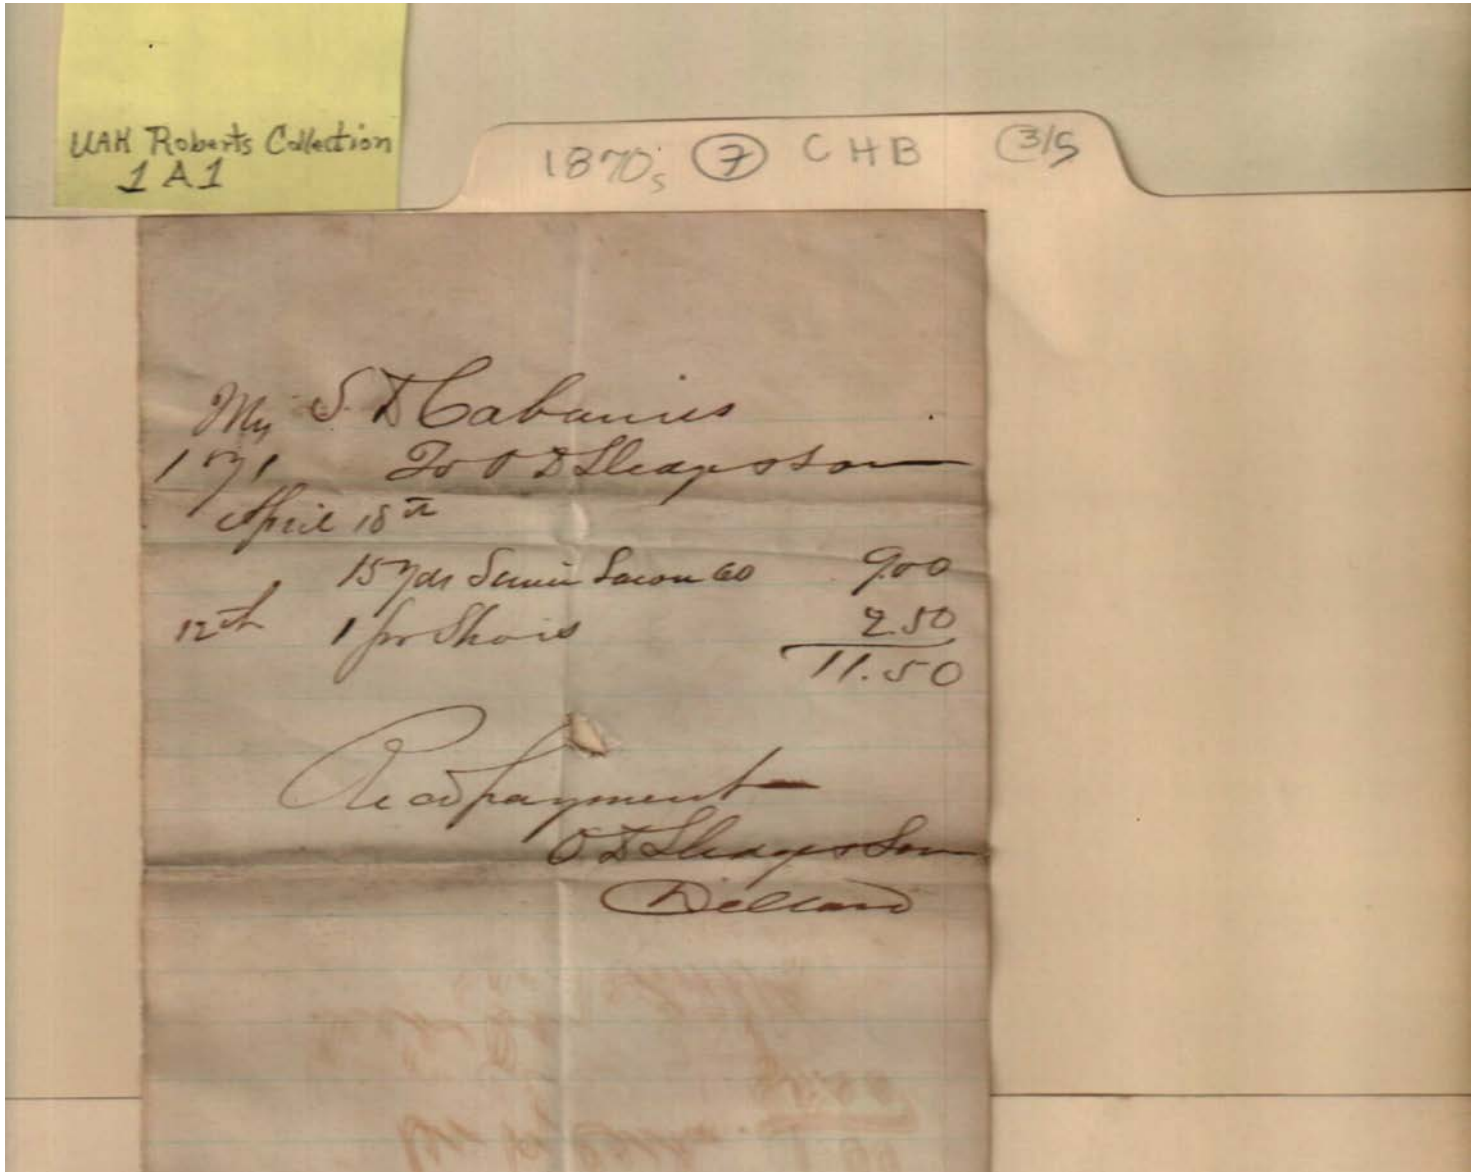 UAH Roberts Collection
1A1
1870s 7 CHB 3/5
S. D Cabaniss
1871 To O D Sledge & Son
April 18th
15 yds Swiss 60 9.00
12th 1 pr Shois 2.50
11.50
Recd payment
O D Sledge & Son
Dillard